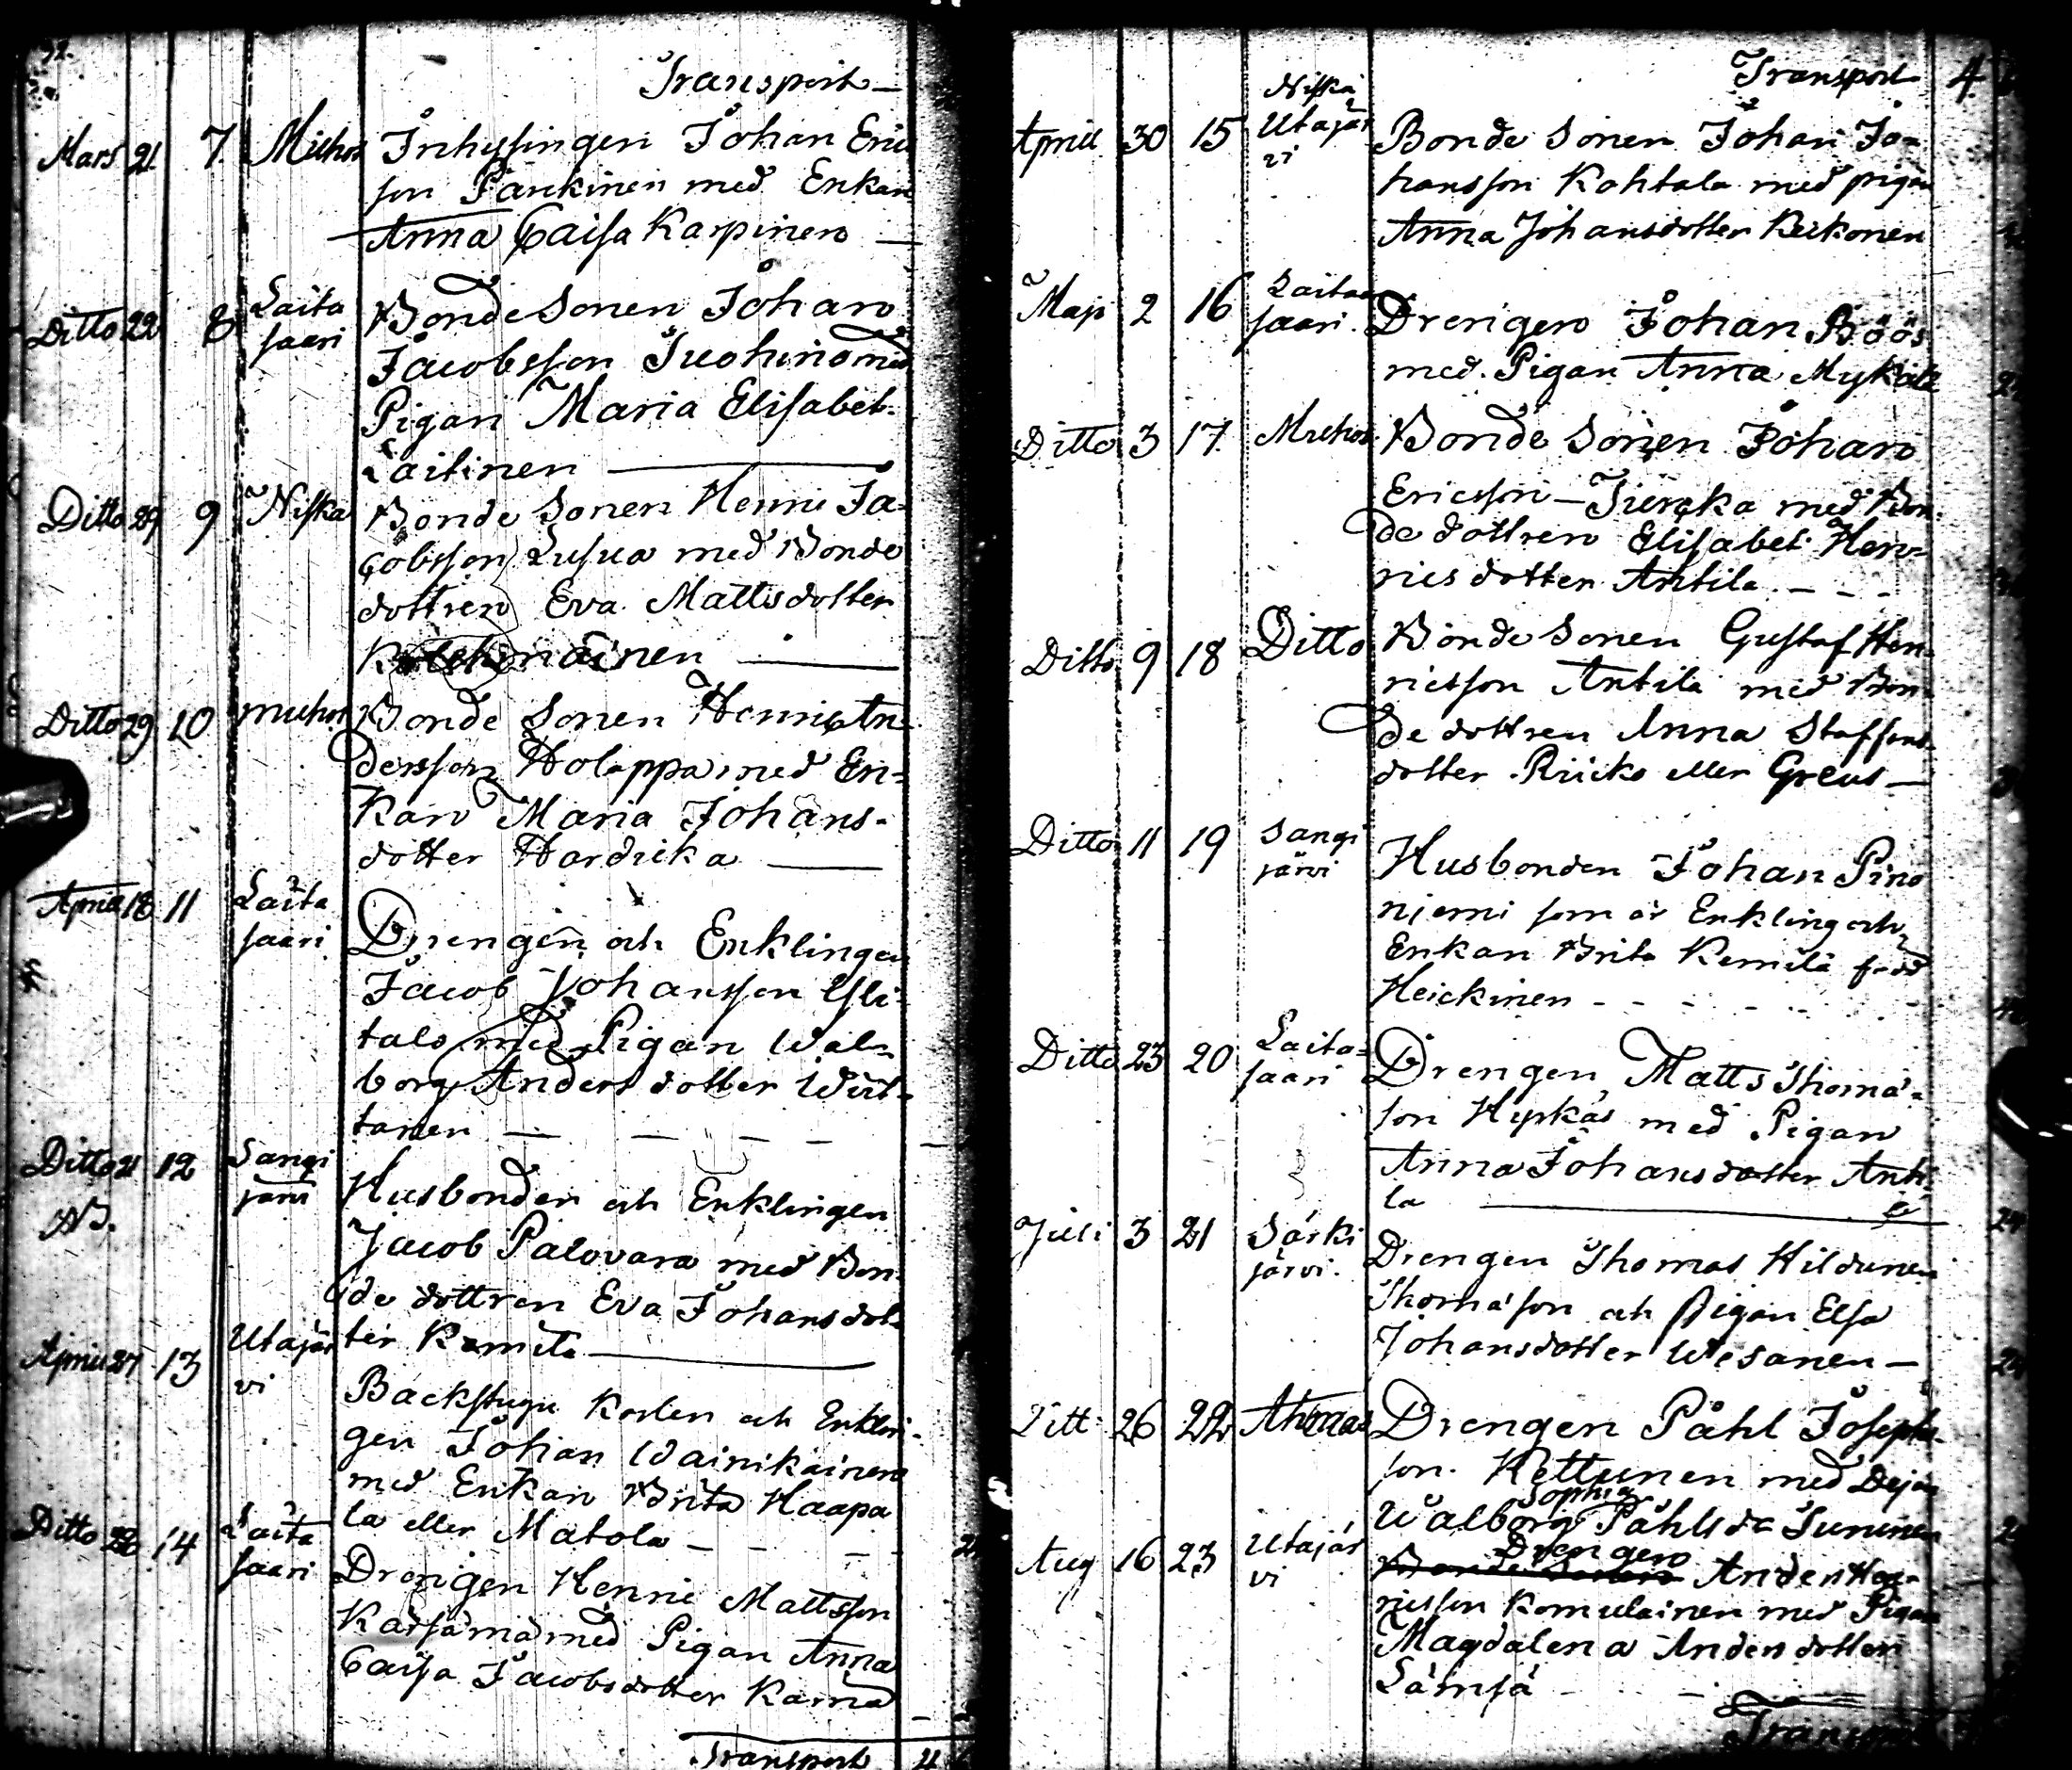 Transport
Mars 21 7. Muhos Inhysingen Johan Eric
son Pankinen med Enkan
Anna Caisa Karpinen
Ditto 22 8 Laita Bonde Sonen Johan
saari Jacobsson Juohino med
Pigan Maria Elisabet
Laitinen
Ditto 29 9 Niska Bonde Sonen Henric Ja-
cobsson Lusua med Bonde
dottren Eva Mattsdotter
Ditto 29 10 muhos Bonde Sonen Henric An
dersson Holappa med En-
kan Maria Johans-
dotter Hardicka
April 18 11 Laita
saari Drengen och Enklingen
Jacob Johansson Yli-
talo med Pigan Wal-
borg Anders dotter Wirt-
tanen
Ditto 21 12 Sangi
järvi Husbonden och Enklingen
NB.
Jacob Palovara med Bon-
de dottren Eva Johansdot-
Utajär ter Kemila
April 27 13 vi
Backstugu Karlen och Enklin-
gen Johan Wainikainen
med Enkan Brita Haapa
la eller Matola
Ditto 28 14 Laita
saari Drengen Henric Mattsson
Karsämä med Pigan Anna
Caisa Jacobsdotter Kama
Transport 4
Transport 4
Niska
April 30 15 Utajär Bonde Sonen Johan Jo-
vi hansson Kohtala med pigan
Anna Johansdotter Keikonen
Maji 2 16 Laita
saari. Drengen Johan Böös
med Pigan Anna Mykälä
Ditto 3 17 Muhos. Bonde Sonen Johan
Ericsson Tiercka med Bon-
de dottren Elisabet Hen-
ricsdotter Antila
Ditto 9 18 Ditto Bonde Sonen Gustaf Hen-
ricsson Antila med Bon-
de dottren Anna Staffans
dotter Riicko eller Greus
Ditto 11 19 Sangi
järvi Husbonden Johan Pino
niemi som är Enkling och
Enkan Brita Kemilä född
Heickinen
Ditto 23 20 Laita-
saari Drengen Matts Thoma-
son Hyrkäs med Pigan
Anna Johansdotter Anti
la
Juli 3 21 Särki
järvi. Drengen Thomas Hildunen
Thomason och Pigan Elsa
Johansdotter Wesanen
Ditt 26 22 Ahmas Drengen Påhl Josephs-
son Kettunen med Dejan
Sophia
Walborg Påhlsdr Junnnen
Drengen
Aug 16 23 Utajär
vi Bonde Sonen Anders Hen-
ricsson Komulainen med Pigan
Magdalena Anders dotter
Lämsä
Transport